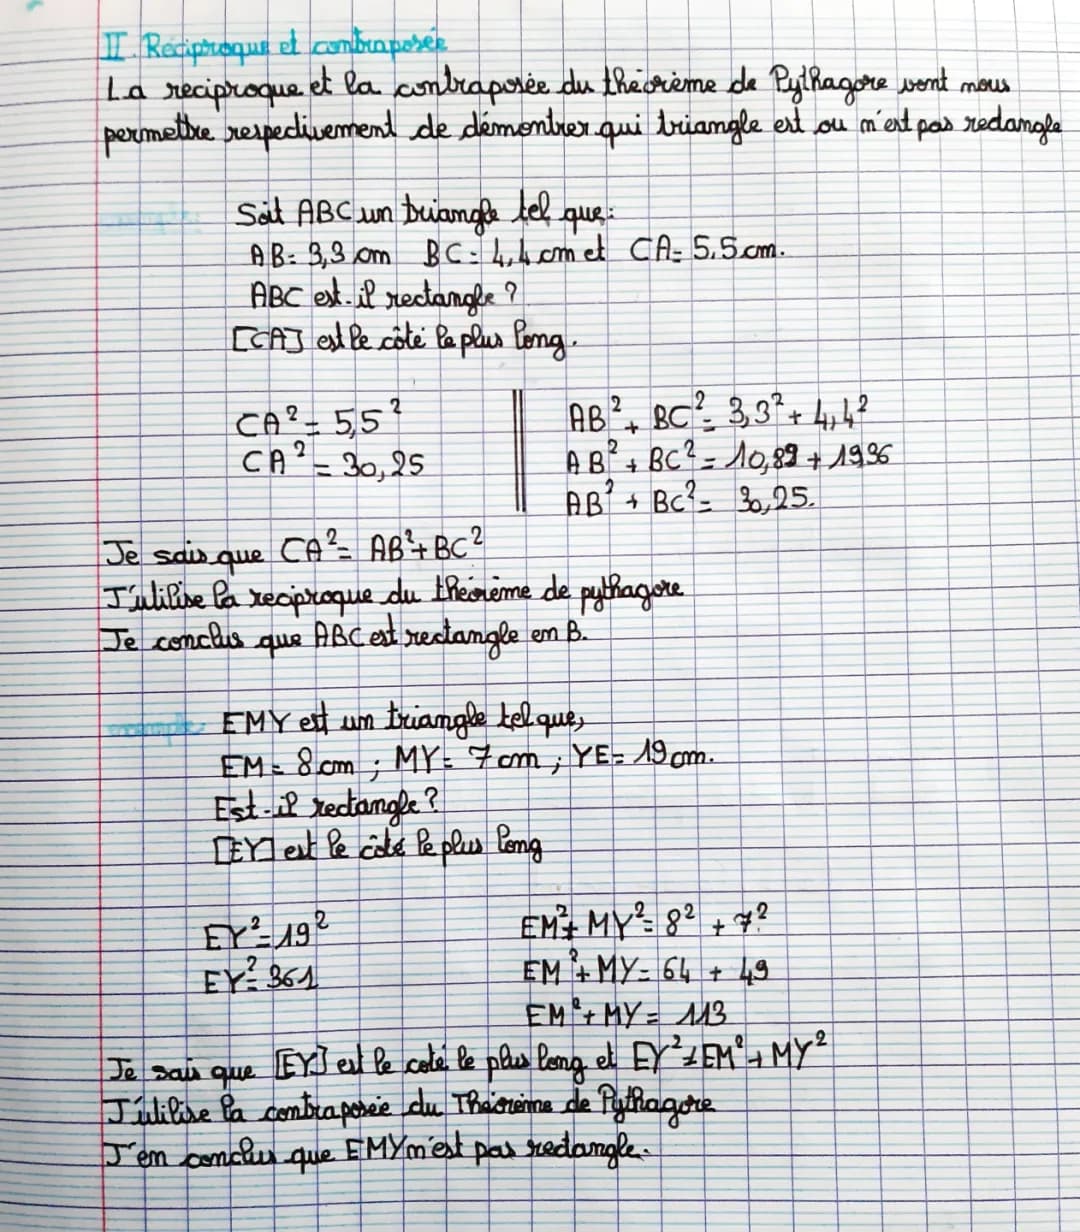 II. Réciproque et contraposée
La réciproque et la contraposée du théorème de Pythagore vont nous
permettre respectivement de démontrer qui triangle est ou n'est pas rectangle
exemple:
Soit ABC un triangle tel que:
AB= 3,3 cm BC= 4,4 cm et CA= 5,5 cm.
ABC est-il rectangle ?
[CA] est le côté le plus long.
CA²= 5,5²
CA²= 30,25
AB² + BC²= 3,3² + 4,4²
AB² + BC²= 10,89 + 19,36
AB² + BC²= 30,25.
Je sais que CA²= AB²+BC²
J'utilise la réciproque du théorème de pythagore
Je conclus que ABC est rectangle en B.
exemple: EMY est un triangle tel que,
EM= 8 cm ; MY= 7 cm ; YE= 19 cm.
Est-il rectangle?
[EY] est le côté le plus long
EY²=19²
EY²=361
EM²+ MY²= 8² + 7²
EM²+MY= 64 + 49
EM²+MY= 113
Je sais que [EY] est le coté le plus long et EY²≠EM²+MY²
J'utilise la contraposée du Théorème de Pythagore
J'en conclus que EMY n'est pas rectangle.